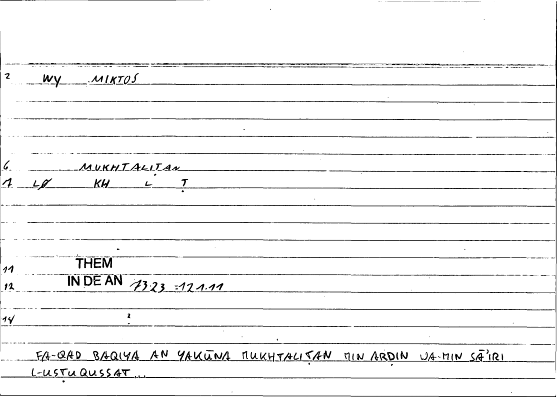 2 WY MIKTOS
6 MUKHTALIṬAN
7 LØ KH L Ṭ
11 THEM
12 IN DE AN 7323 :12.1.11
14
FA-QAD BAQIYA AN YAKŪNA MUKHTALIṬAN MIN ARḌIN WA-MIN SĀ'IRI
L-USṬUQUSSAT...